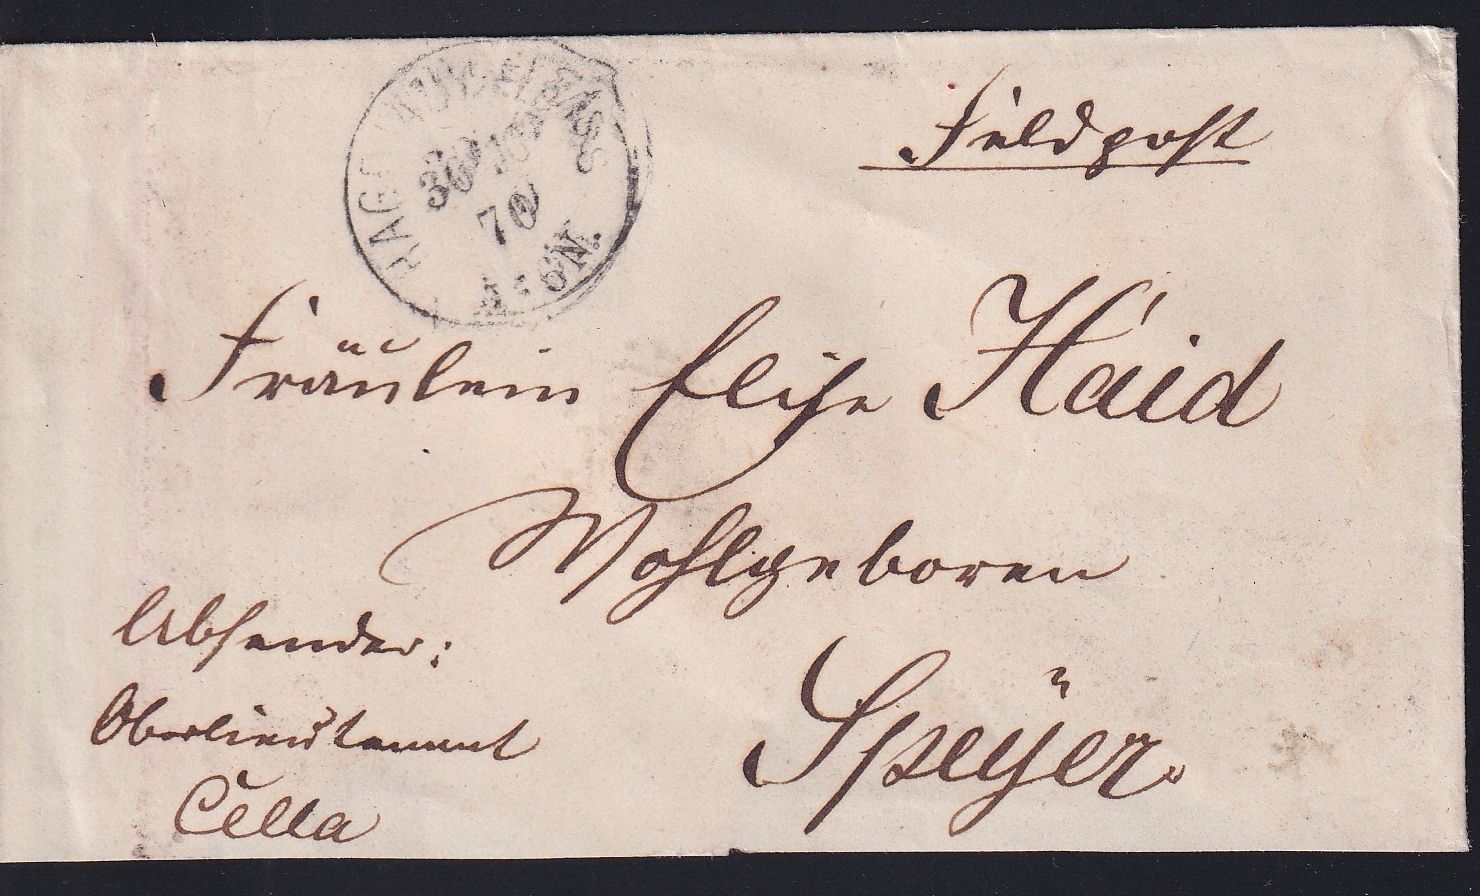 HAGENAU I/M. ELSASS
30 10
70
4-5 N.
Feldpost
Fräulein Elise Haid
Wohlgeboren
Speÿer.
Absender:
Oberlieutenant
Cella